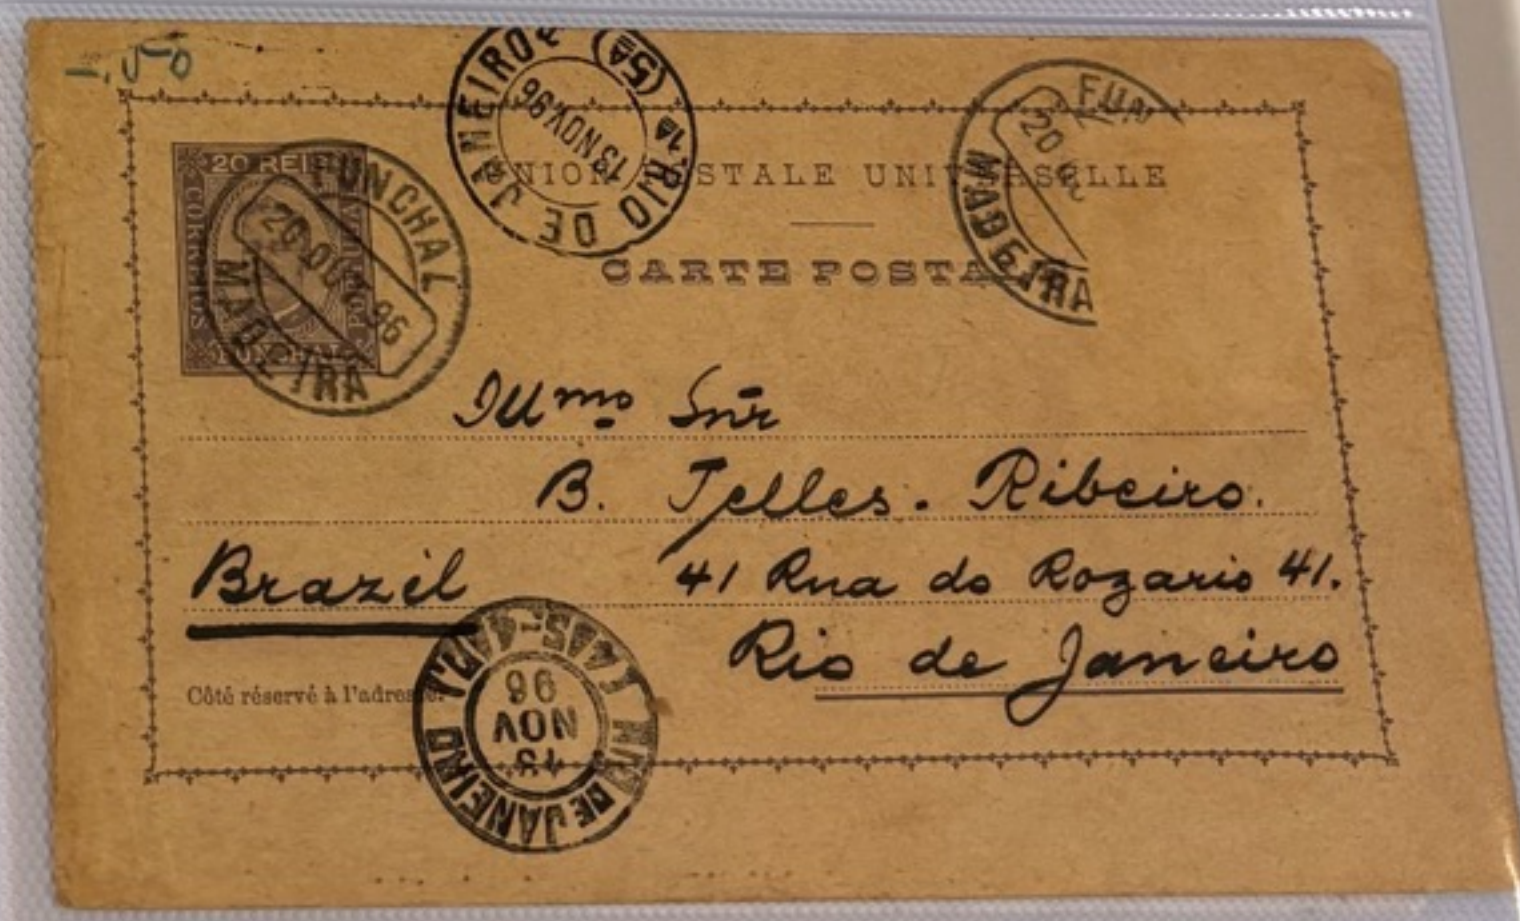 1.50
20 REIS
CORREIOS
FUNCHAL
FUNCHAL
20 OU 96
MADEIRA
RIO DE JANEIRO
(5A)
1A
13 NOV 96
FUN
20
MADEIRA
UNION POSTALE UNIVERSELLE
CARTE POSTA
Illmo Snr
B. Telles. Ribeiro.
Brazil
41 Rua do Rozario 41.
Rio de Janeiro
Côté réservé à l'adresse.
RIO DE JANEIRO
13
NOV
96